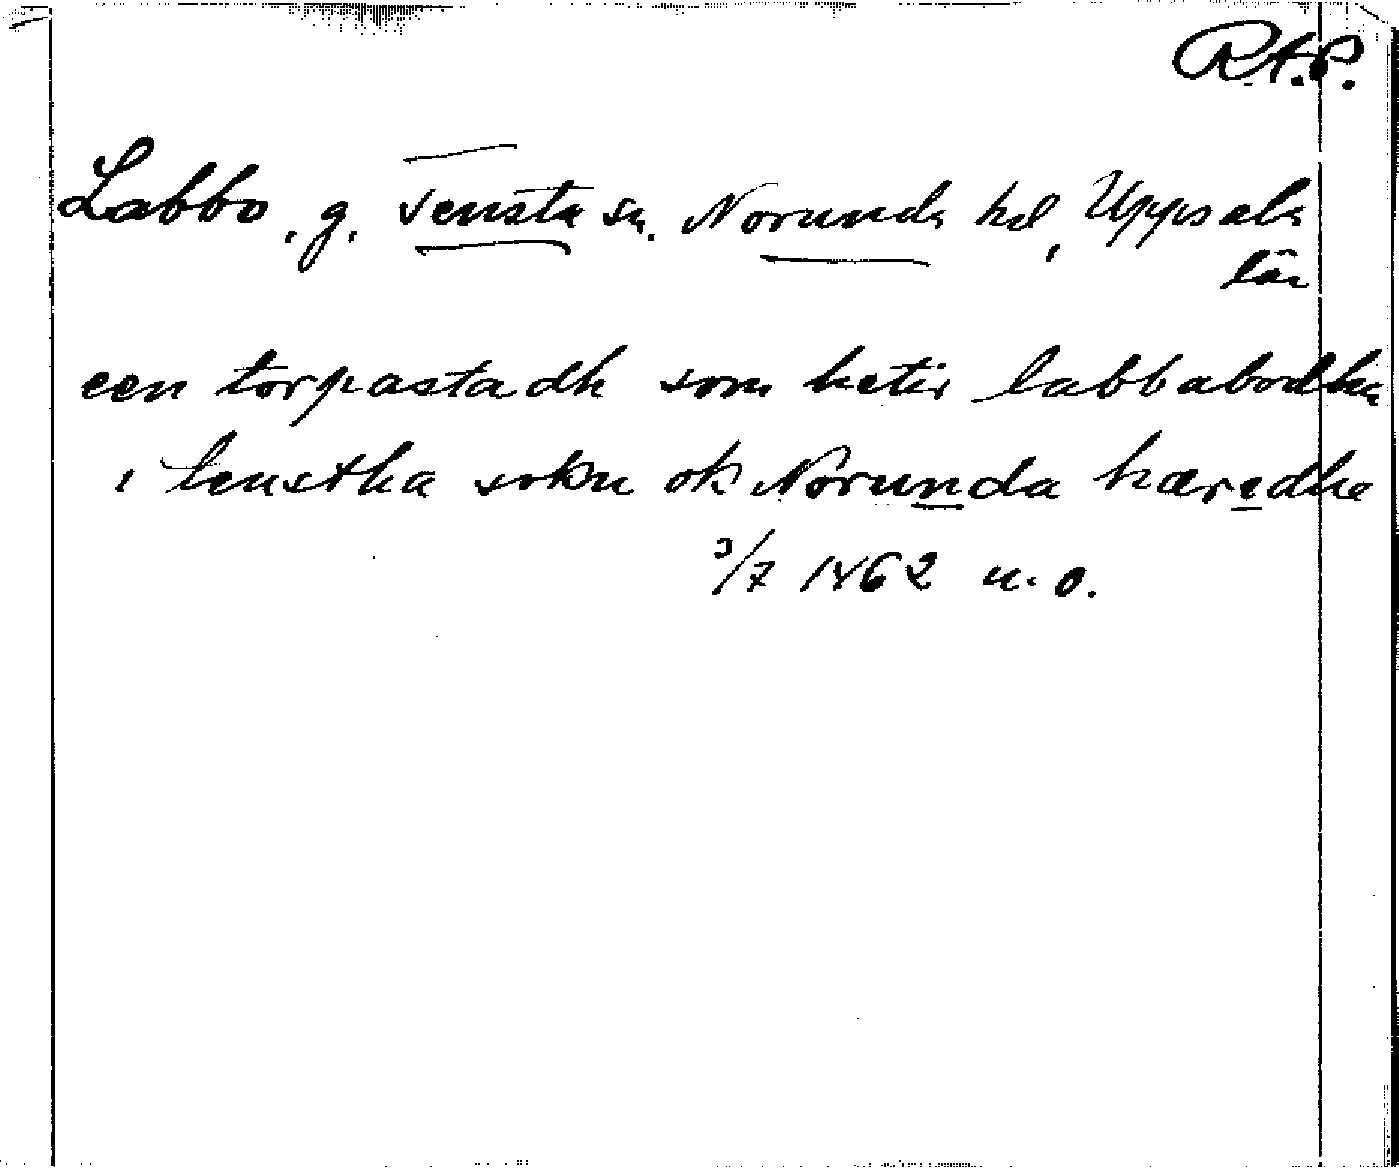 R.A.P.
Labbo, g. Tensta sn. Norunda hd, Uppsala
län
een torpastadh som hetir labbabodha
i tenstha sokn ok Norunda hæredhe
3/7 1462 u. o.